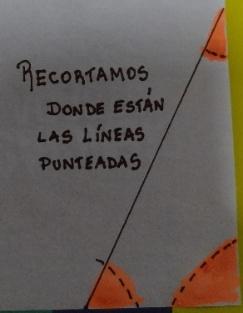 RECORTAMOS
DONDE ESTÁN
LAS LÍNEAS
PUNTEADAS